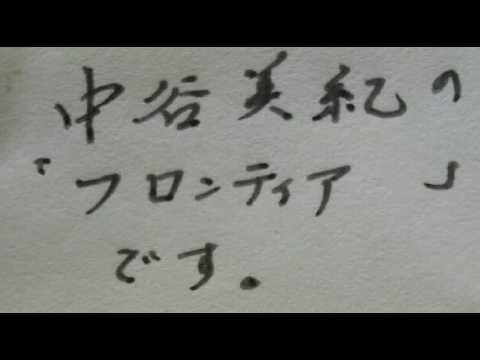 中谷美紀の
「フロンティア」
です。